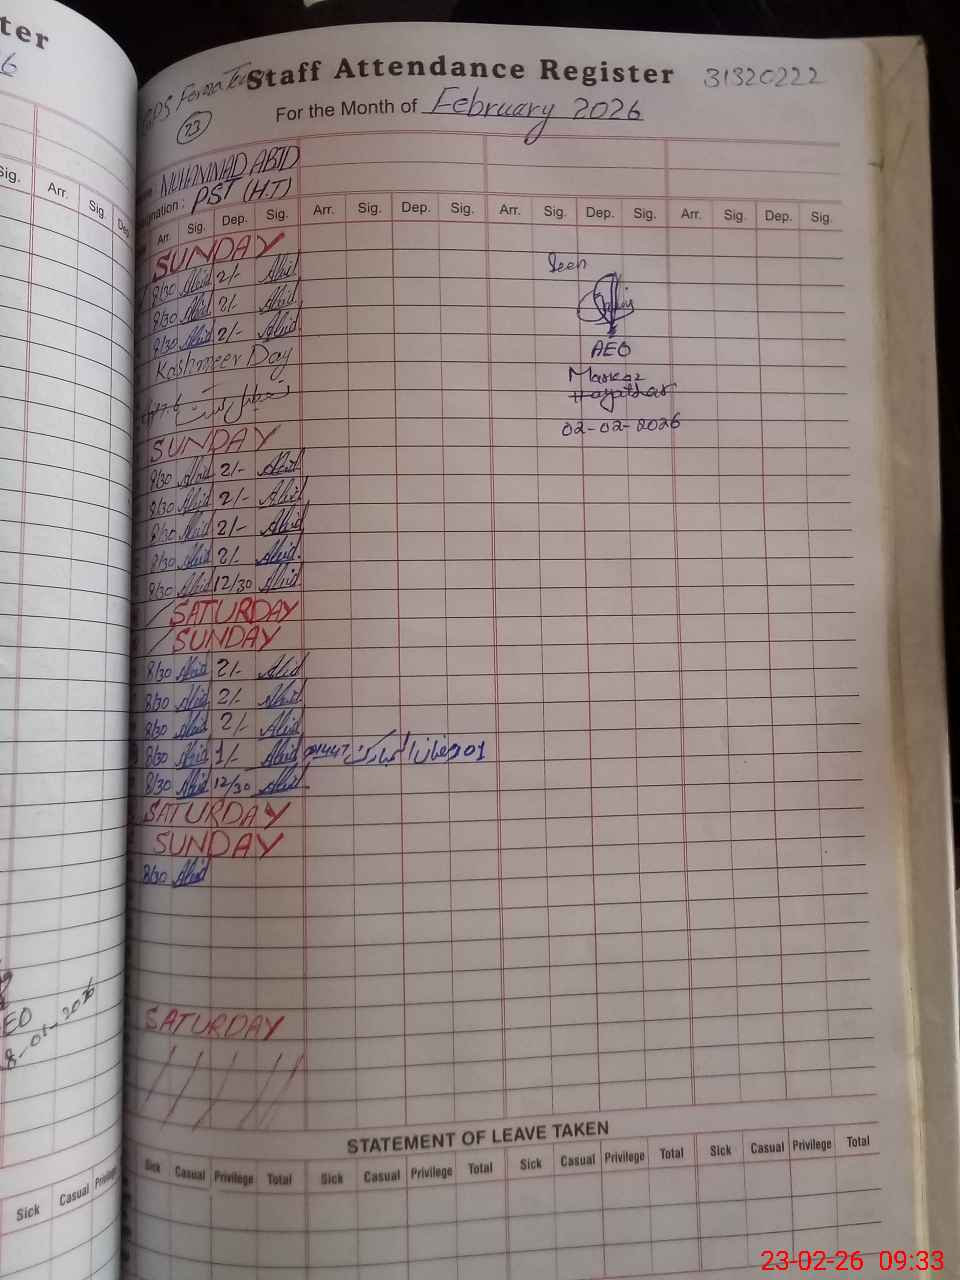 ter
Staff Attendance Register 31320222
GPS
23
For the Month of February 2026
MUHAMMAD ABID
PST (H.T)
Sig. Arr. Sig. Dep.
Arr. Sig. Dep. Sig. Arr. Sig. Dep. Sig. Arr. Sig. Dep. Sig. Arr. Sig. Dep. Sig.
SUNDAY
8/30 Abid 2/- Abid
Seen
8/30 Abid 2/- Abid
8/30 Abid 2/- Abid
AEO
Kashmeer Day
Markaz
02-02-2026
SUNDAY
8/30 Abid 2/- Abid
8/30 Abid 2/- Abid
8/30 Abid 2/- Abid
8/30 Abid 2/- Abid
8/30 Abid 12/30 Abid
SATURDAY
SUNDAY
8/30 Abid 2/- Abid
8/30 Abid 2/- Abid
8/30 Abid 2/- Abid
8/30 Abid 1/- Abid 01 رمضان المبارک 1447
8/30 Abid 12/30 Abid
SATURDAY
SUNDAY
8/30 Abid
SATURDAY
STATEMENT OF LEAVE TAKEN
Sick Casual Privilege Total Sick Casual Privilege Total Sick Casual Privilege Total Sick Casual Privilege Total
Sick Casual
23-02-26 09:33